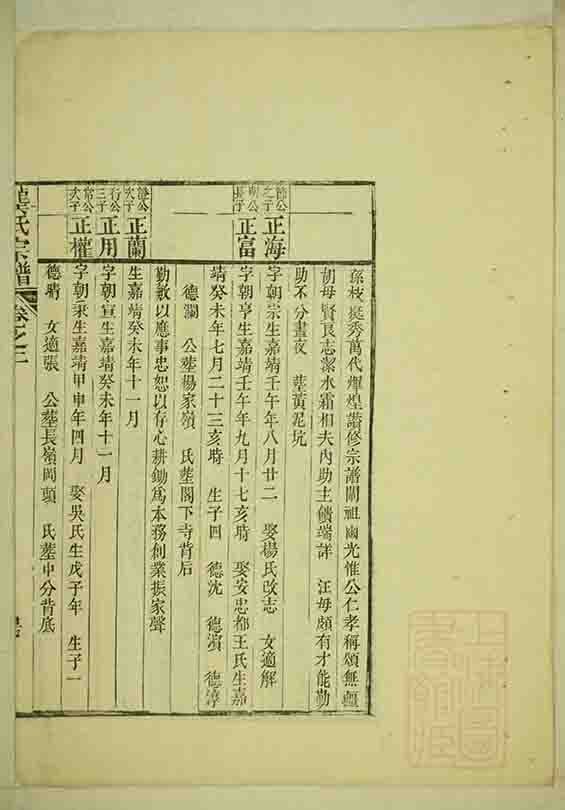 孫枝挺秀萬代煇煌譜修宗譜闡祖幽光惟公仁孝稱頌無疆
胡母賢良志潔水霜相夫內助主饋端詳 汪母頗有才能勤
助不分晝夜 塟黃坭坑
之子 正海 字朝宗生嘉靖壬午年八月廿二 娶楊氏改志 女適解
明公長子 正富 字朝亨生嘉靖壬午年九月十七亥時 娶安忠都王氏生嘉
靖癸未年七月二十三亥時 生子四 德沈 德濱 德淳
德瀾 公塟楊家嶺 氏塟閣下寺背后
勤敏以應事忠恕以存心耕鋤為本務利業振家聲
公次子 正蘭 生嘉靖癸未年十一月
行公三子 正用 字朝宣生嘉靖癸未年十一月
常公次子 正權 字朝秉生嘉靖甲申年四月 娶吳氏生戊子年 生子一
德晴 女適張 公塟長嶺岡頭 氏塟中分背底
氏宗譜 卷之二